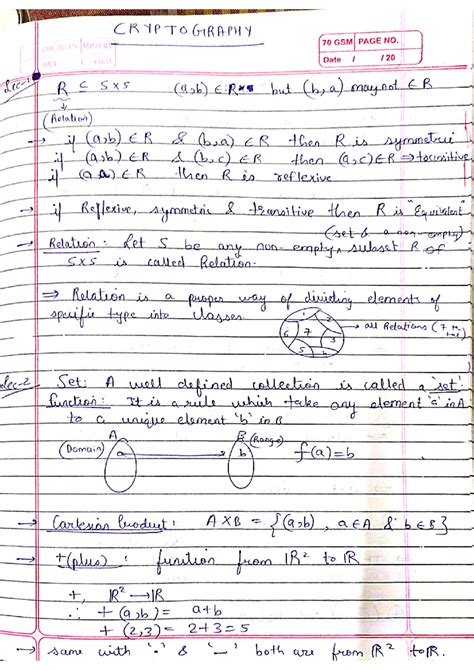 CRYPTOGRAPHY
70 GSM PAGE NO.
Date / / 20
Lec-1
R ⊆ S×S (a,b) ∈ R but (b,a) may not ∈ R
(Relation)
→ if (a,b) ∈ R & (b,a) ∈ R then R is symmetric
if (a,b) ∈ R & (b,c) ∈ R then (a,c) ∈ R ⇒ transitive
if (a,a) ∈ R then R is reflexive
→ if Reflexive, symmetric & transitive then R is "Equivalent"
(set & a non-empty)
→ Relation: Let S be any non-empty, subset R of
S×S is called Relation.
⇒ Relation is a proper way of dividing elements of
specific type into classes.
1 2 3 4 5 6 7
→ all Relations (7
Lec-2 Set: A well defined collection is called a 'set'.
Function: It is a rule which take any element 'a' in A
to a unique element 'b' in B
A B (Range)
(Domain) a b f(a)=b
→ Cartesian Product: A×B = {(a,b), a∈A & b∈B}
→ +(plus): function from ℝ² to ℝ
+, ℝ² → ℝ
∴ + (a,b) = a+b
+ (2,3) = 2+3 = 5
→ same with '.' & '—' both are from ℝ² to ℝ.